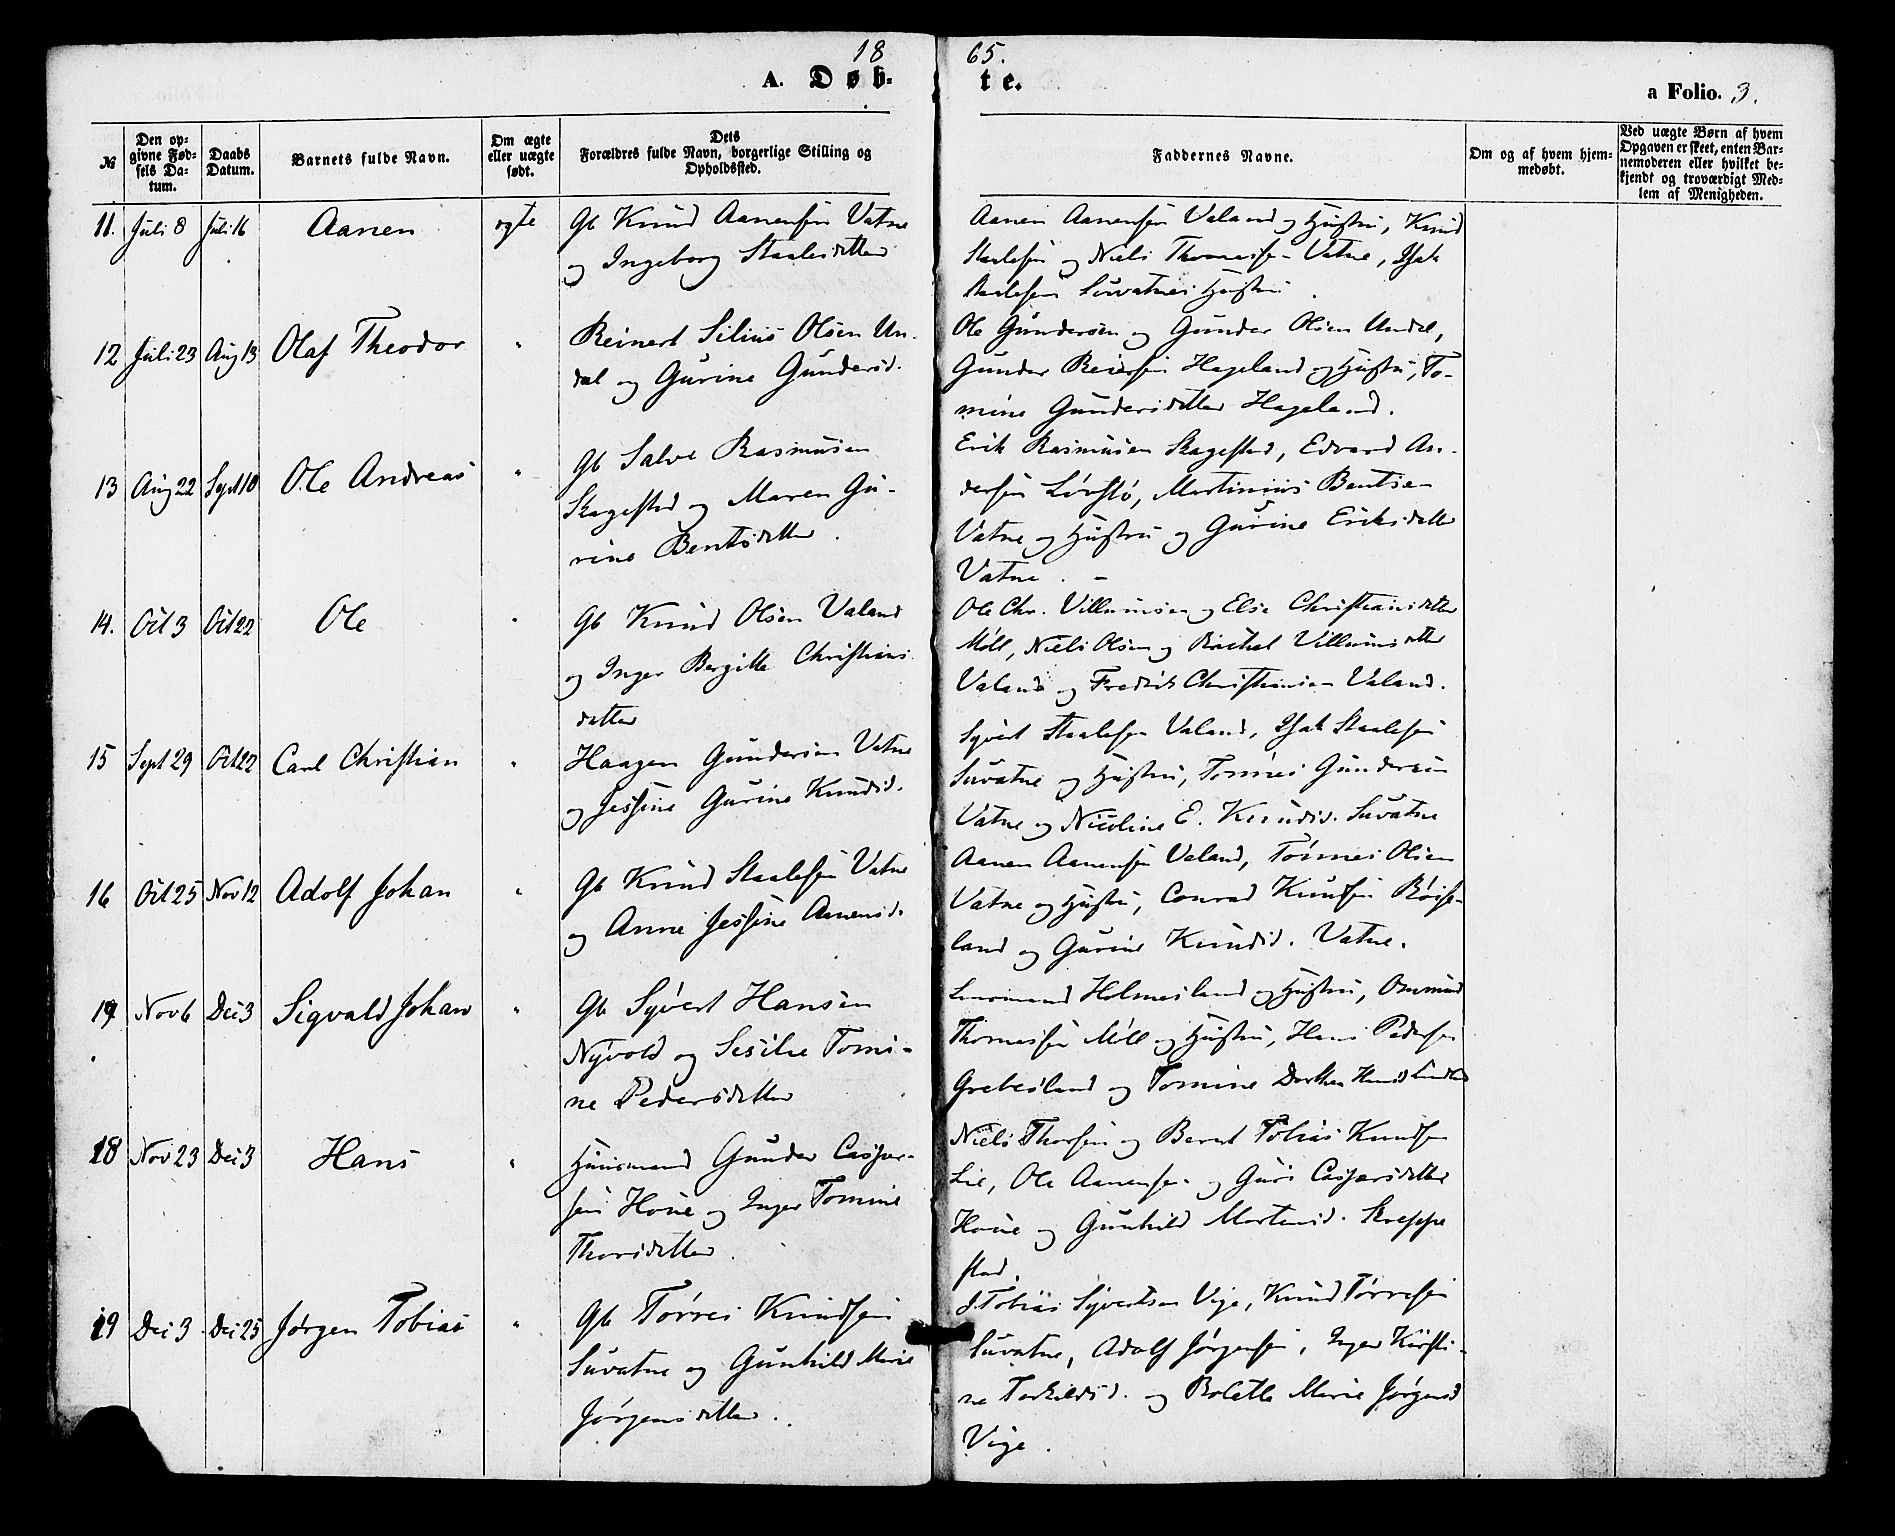 18 65.
A. Døb- te.
a Folio. 3.
№
Den opgivne Fødsels Datum.
Daabs Datum.
Barnets fulde Navn.
Om ægte eller uægte født.
Dets Forældres fulde Navn, borgerlige Stilling og Opholdssted.
Faddernes Navne.
Om og af hvem hjemmedøbt.
Ved uægte Børn af hvem Opgaven er skeet, enten Barnemoderen eller hvilket bekjendt og troværdigt Medlem af Menigheden.
11. Juli 8 Juli 16 Aanen ægte
Gb Knud Aanensen Vatne
og Ingeborg Staalesdatter
Aanen Aanensen Valand og Hustru, Knud
Staalesen og Niels Thomesen Vatne, Isak
Staalesen Suvatnes Hustru.
12 Juli 23 Aug 13 Olaf Theodor "
Reinert Silius Olsen Un-
dal og Gurine Gundersd.
Ole Gundersen og Gunder Olsen Undal,
Gunder Reiersen Hageland og Hustru, To-
mine Gundersdatter Hageland.
13 Aug 22 Sept 10 Ole Andreas "
Gb Salve Rasmusen
Skagestad og Maren Gu-
rine Bentsdatter.
Erik Rasmusen Skagestad, Edvard An-
dersen Løvstø, Martinius Bentsen
Vatne og Hustru og Gurine Eriksdatter
Vatne. -
14. Oct 3 Oct 22 Ole "
Gb Knud Olsen Valand
og Inger Bergitte Christians
datter
Ole Chr. Villumsen og Else Christiansdatter
Møll, Niels Olsen og Rachel Villumsdatter
Valand og Fredrik Christiansen Valand.
15 Sept 29 Oct 22 Carl Christian "
Haagen Gundersen Vatne
og Jessine Gurine Knudsd.
Syvert Staalesen Valand, Isak Staalesen
Suvatne og Hustru, Tønnes Gundersen
Vatne og Nicoline E. Knudsd. Suvatne
16 Oct 25 Nov 12 Adolf Johan "
Gb Knud Staalesen Vatne
og Anne Jessine Aanensd.
Aanen Aanensen Valand, Tønnes Olsen
Vatne og Hustru, Conrad Knudsen Røise-
land og Gurine Knudsd. Vatne.
17 Nov 6 Dec 3 Sigvald Johan "
Gb Syvert Hansen
Nyvold og Sesilie Tomi-
ne Pedersdatter
Holmesland og Hustru, Omund
Thomesen Møll og Hustru, Hans Pedersen
Grebesland og Tomine Dorthea Hansd
18 Nov 23 Dec 3 Hans "
Huusmand Gunder Casper-
sen Houe og Inger Tomine
Thorsdatter.
Niels Thorsen og Bernt Tobias Knudsen
Lie, Ole Aanensen og Guri Caspersdatter
Houe og Gunhild Mortensd. Skeppe
stad.
19 Dec 3 Dec 25 Jørgen Tobias "
Gb Tørres Knudsen
Suvatne og Gunhild Marie
Jørgensdatter.
J. Tobias Syvertsen Vige, Knud Tørresen
Suvatne, Adolf Jørgensen, Inger Kirsti-
ne Torkildsd. og Bolette Marie Jørgensd
Vige.